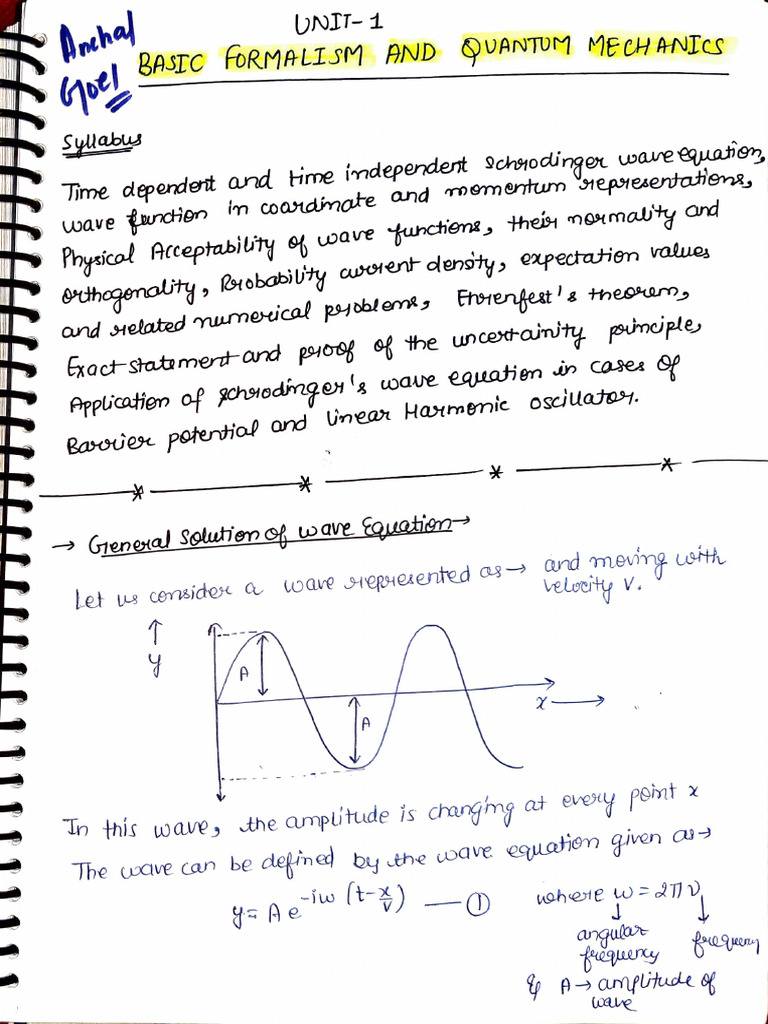 UNIT-1
Anchal
Goel
BASIC FORMALISM AND QUANTUM MECHANICS
Syllabus
Time dependent and time independent schrodinger wave equation,
wave function in coardinate and momentum representations,
Physical Acceptability of wave functions, their normality and
orthogonality, Probability current density, expectation values
and related numerical problems, Ehrenfest's theorem,
Exact statement and proof of the uncertainity principle,
Application of schrodinger's wave equation in cases of
Barrier potential and linear Harmonic oscillator.
→ General Solution of wave Equation →
Let us consider a wave represented as → and moving with
velocity v.
↑
y
A
A
x →
In this wave, the amplitude is changing at every point x
The wave can be defined by the wave equation given as →
y = A e^{-iw (t - x/v)} — ①
where w = 2πν
↓ ↓
angular frequency
frequency
& A → amplitude of
wave